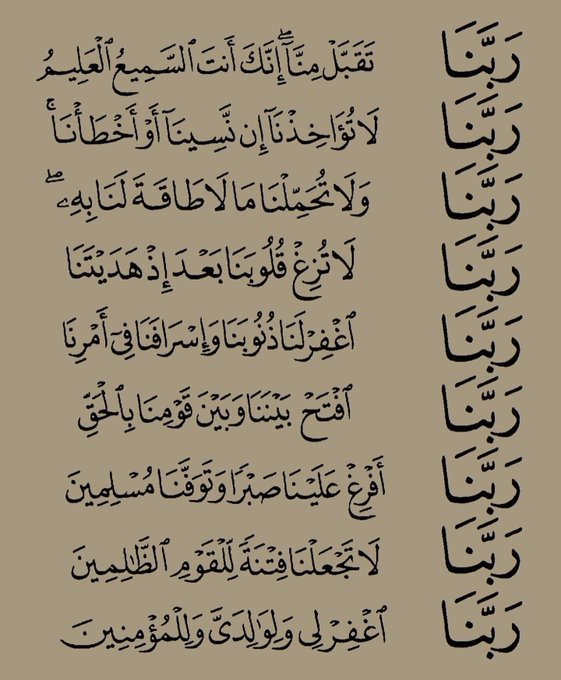 رَبَّنَا تَقَبَّلْ مِنَّآ ۖ إِنَّكَ أَنتَ ٱلسَّمِيعُ ٱلْعَلِيمُ
رَبَّنَا لَا تُؤَاخِذْنَآ إِن نَّسِينَآ أَوْ أَخْطَأْنَا ۚ
رَبَّنَا وَلَا تُحَمِّلْنَا مَا لَا طَاقَةَ لَنَا بِهِۦ ۖ
رَبَّنَا لَا تُزِغْ قُلُوبَنَا بَعْدَ إِذْ هَدَيْتَنَا
رَبَّنَا ٱغْفِرْ لَنَا ذُنُوبَنَا وَإِسْرَافَنَا فِىٓ أَمْرِنَا
رَبَّنَا ٱفْتَحْ بَيْنَنَا وَبَيْنَ قَوْمِنَا بِٱلْحَقِّ
رَبَّنَآ أَفْرِغْ عَلَيْنَا صَبْرًا وَتَوَفَّنَا مُسْلِمِينَ
رَبَّنَا لَا تَجْعَلْنَا فِتْنَةً لِّلْقَوْمِ ٱلظَّٰلِمِينَ
رَبَّنَا ٱغْفِرْ لِى وَلِوَٰلِدَىَّ وَلِلْمُؤْمِنِينَ